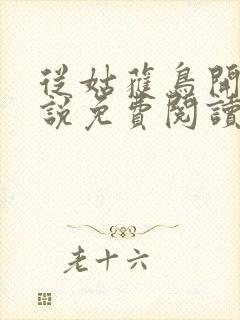 從姑蘿鳥開
說免費閱讀
老十六